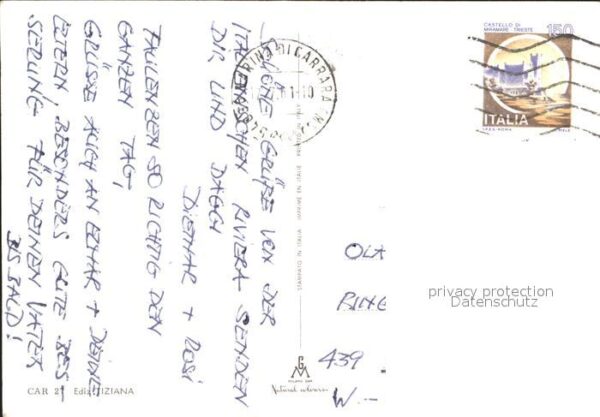 SCHÖNE GRÜßE VON DER
ITALIENISCHEN RIVIERA SENDEN
DIR UND DAGGI
DIETMAR + ROSI
FAULENZEN SO RICHTIG DEN
GANZEN TAG,
GRÜSSE AUCH AN
ELTERN, BESONDERS GUTE BES-
SERUNG FÜR DEINEN VATER
BIS BALD!
MARINA DI CARRARA
CASTELLO DI
MIRAMARE · TRIESTE
150
ITALIA
STAMPATO IN ITALIA IMPRIMÉ EN ITALIE PRINTED IN ITALY
OLA
RING
439
W.-
privacy protection
Datenschutz
CAR 2 Ediz. TIZIANA
MILANO
Natural colour